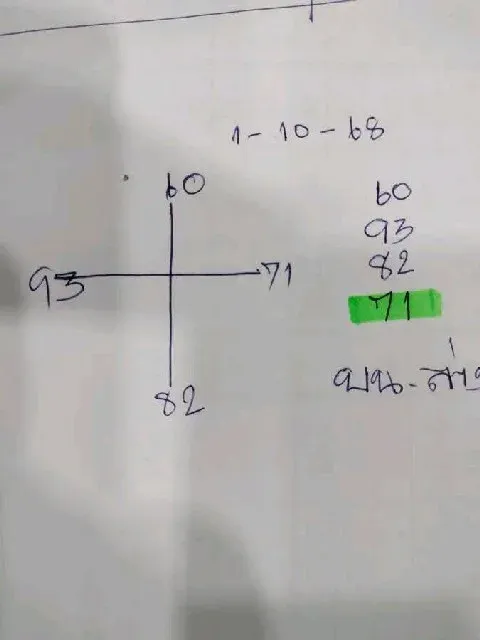 1-10-68
60
93 71
82
60
93
82
71
บน-ล่าง